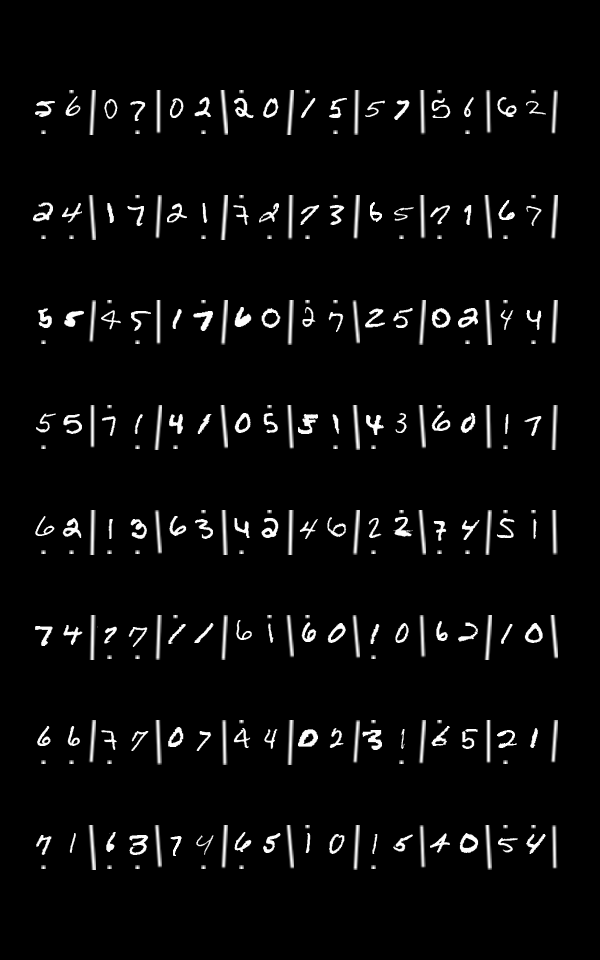 5 6 | 0 7 | 0 2 | 2 0 | 1 5 | 5 7 | 5 6 | 6 2 |
2 4 | 1 7 | 2 1 | 7 2 | 7 3 | 6 5 | 7 1 | 6 7 |
5 5 | 4 5 | 1 7 | 6 0 | 2 7 | 2 5 | 0 2 | 4 4 |
5 5 | 7 1 | 4 1 | 0 5 | 5 1 | 4 3 | 6 0 | 1 7 |
6 2 | 1 3 | 6 3 | 4 2 | 4 6 | 2 2 | 7 4 | 5 1 |
7 4 | 7 7 | 1 1 | 6 1 | 6 0 | 1 0 | 6 2 | 1 0 |
6 6 | 7 7 | 0 7 | 4 4 | 0 2 | 3 1 | 6 5 | 2 1 |
7 1 | 6 3 | 7 4 | 6 5 | 1 0 | 1 5 | 4 0 | 5 4 |